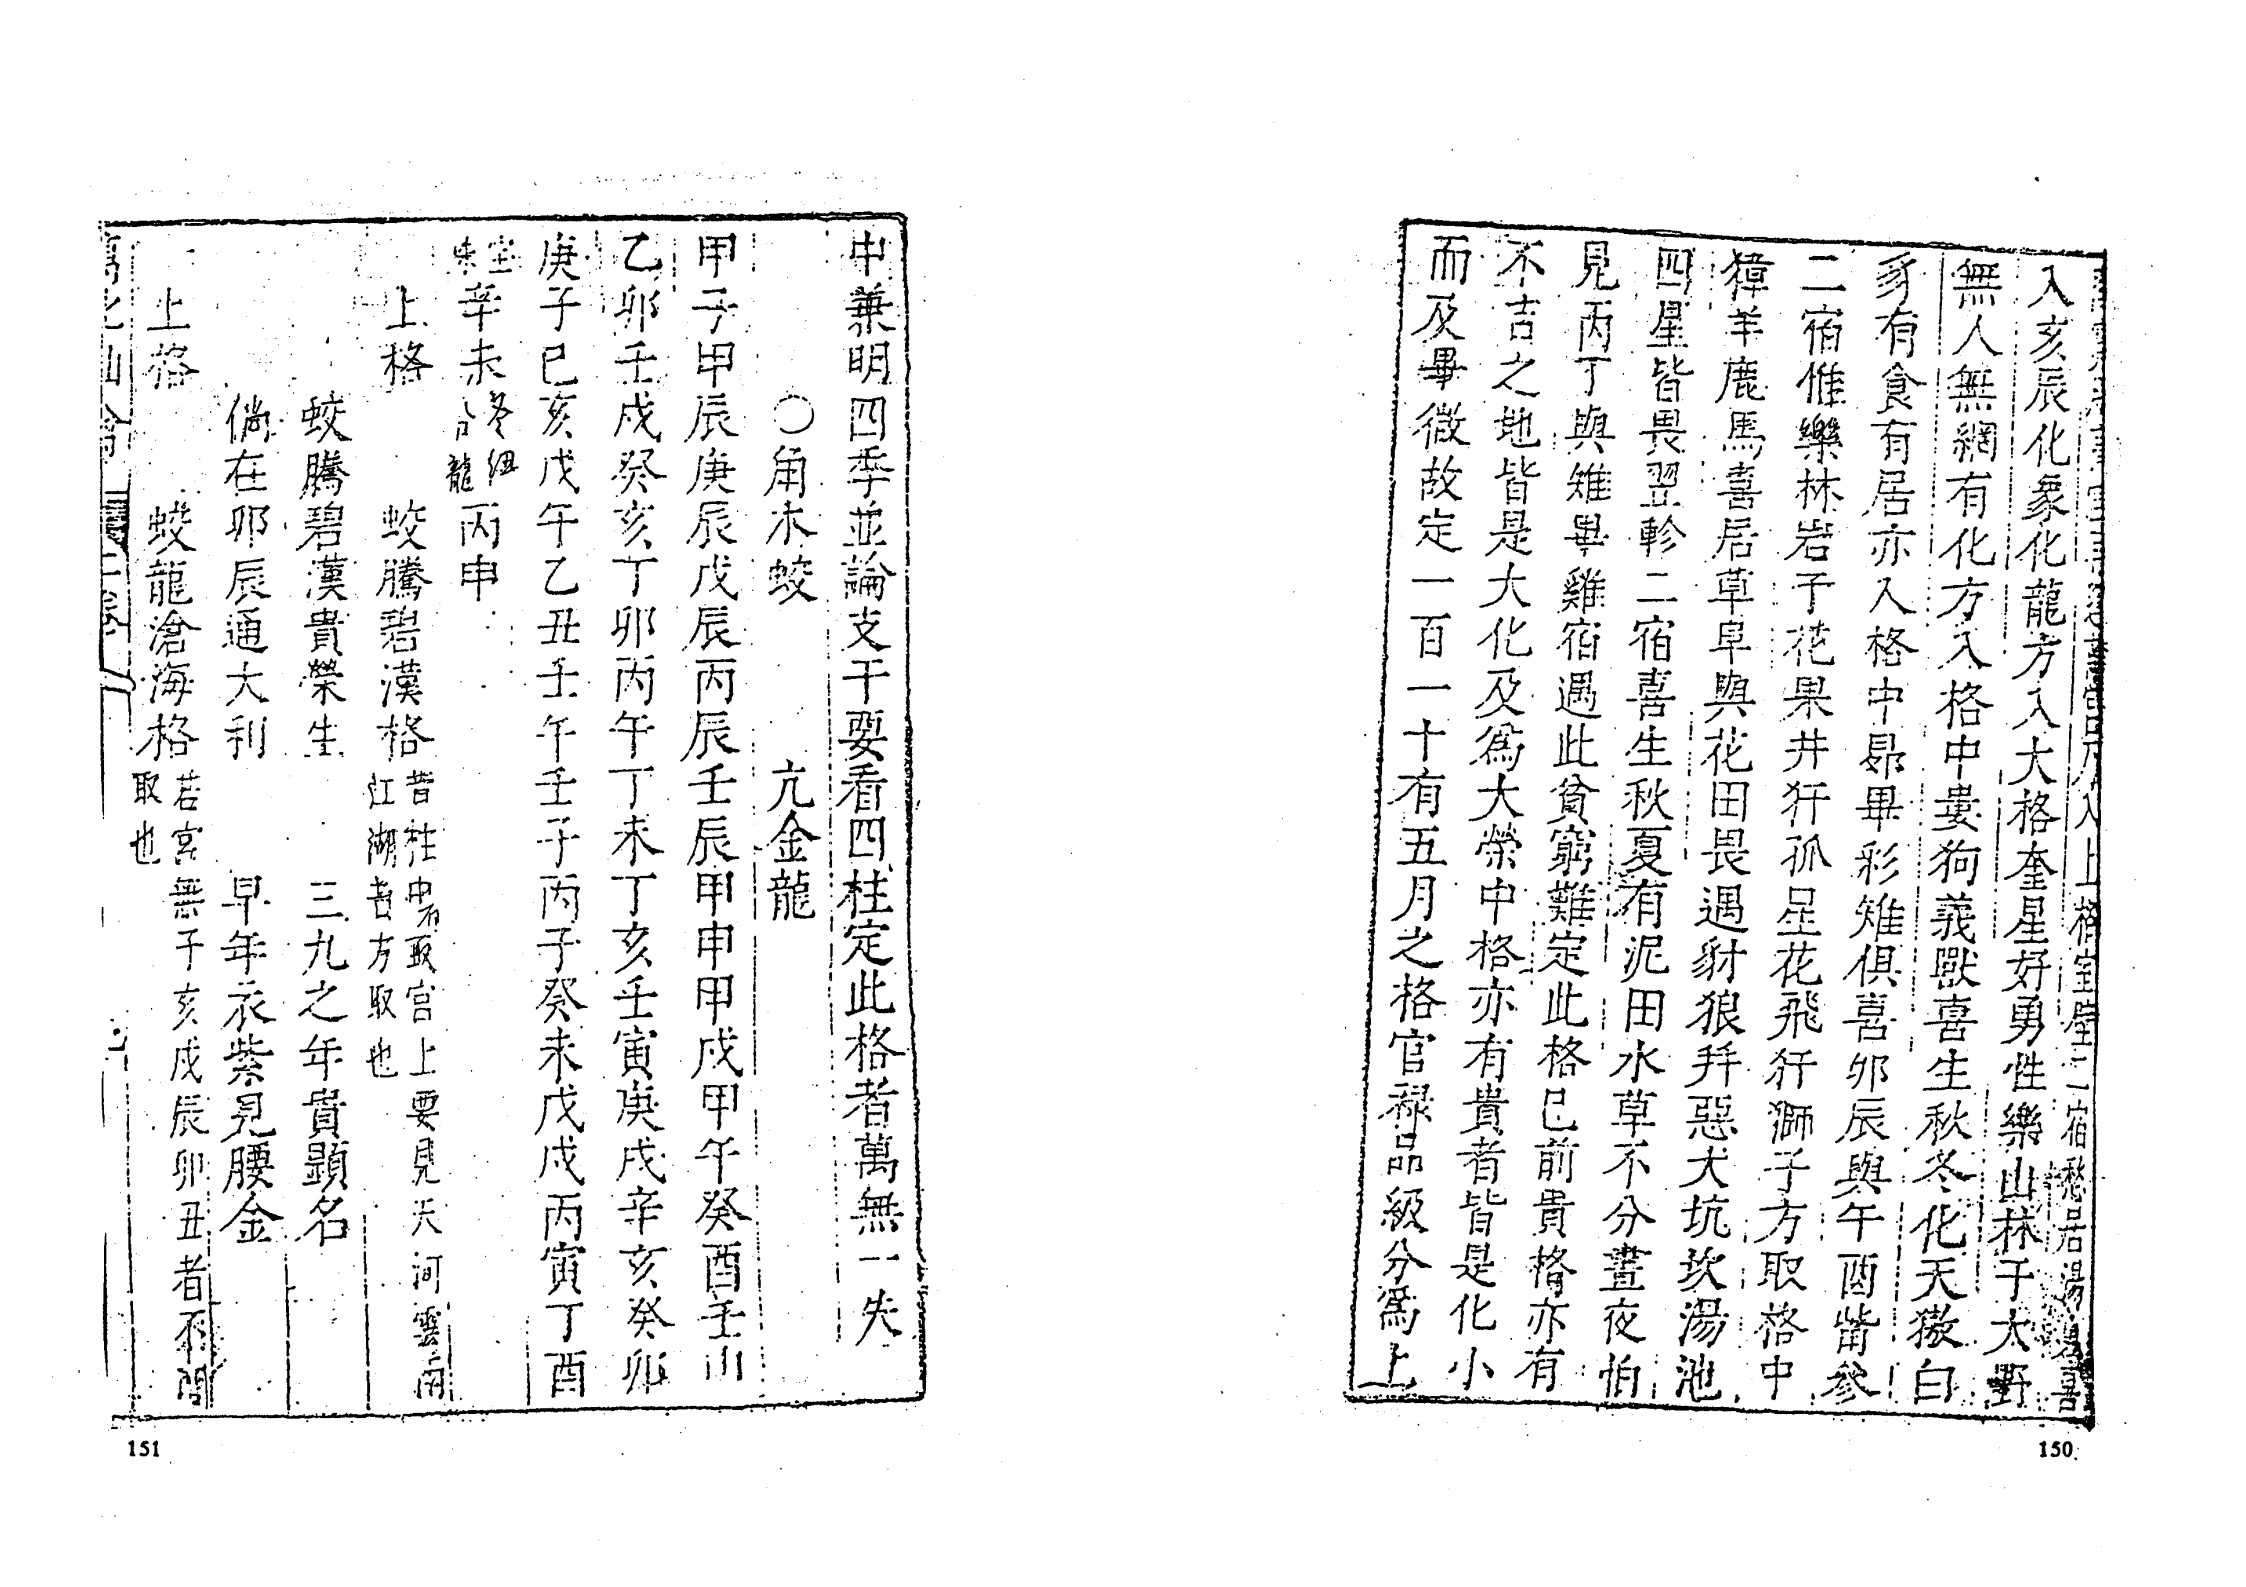 上格室壁二宿愁居湯
入亥辰化象化龍方入大格奎星好勇性樂山林于大野
無人無網有化方入格中婁狗義獸喜生秋冬化天獓白
豕有食有居亦入格中昴畢彩雉俱喜卯辰與午酉觜參
二宿惟樂林岩子花果井犴孤星花飛犴獅子方取格中
獐羊鹿馬喜居草阜與花田畏遇豺狼并惡犬坑坎湯池
四星皆畏翌軫二宿喜生秋夏有泥田水草不分晝夜怕
見丙丁與雉畢雞宿遇此貧窮難定此格已前貴格亦有
不吉之地皆是大化及爲大榮中格亦有貴者皆是化小
而及畢微故定一百一十有五月之格官祿品級分爲上
150
中兼明四季並論支干要看四柱定此格者萬無一失
○角木蛟 亢金龍
甲子甲辰庚辰戊辰丙辰壬辰甲申甲戌甲午癸酉壬
乙卯壬戌癸亥丁卯丙午丁未丁亥壬寅庚戌辛亥癸卯
庚子巳亥戊午乙丑壬午壬子丙子癸未戊戌丙寅丁酉
辛未 丙申
上格 蛟騰碧漢格 昔柱中若取宮上要見天河雲雨
江湖者方取也
蛟騰碧漢貴榮生 三九之年貴顯名
倘在卯辰通大利 早年衣紫見腰金
上格 蛟龍滄海格 若宮無子亥戌辰卯丑者不
取也
151